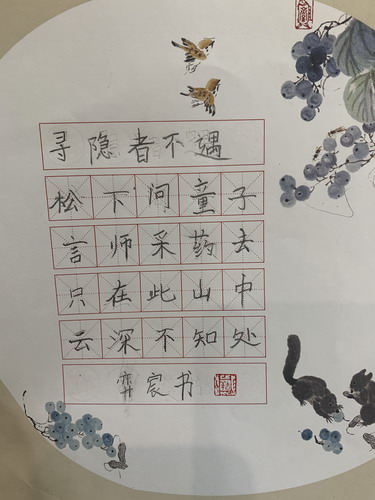 寻隐者不遇
松下问童子
言师采药去
只在此山中
云深不知处
弈宸书